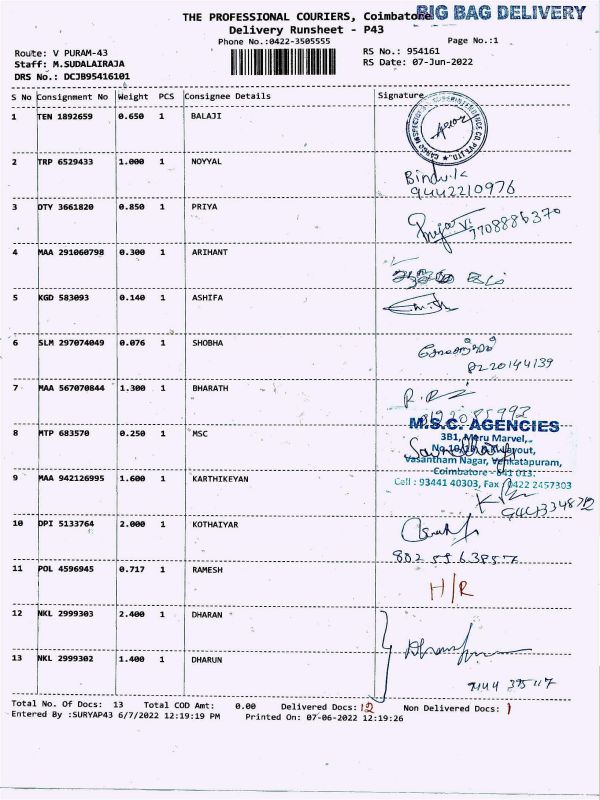 THE PROFESSIONAL COURIERS, Coimbatore
BIG BAG DELIVERY
Delivery Runsheet - P43
Phone No.:0422-3505555
Page No.:1
Route: V PURAM-43
RS No.: 954161
Staff: M.SUDALAIRAJA
RS Date: 07-Jun-2022
DRS No.: DCJB95416101
S No Consignment No Weight PCS Consignee Details Signature
1 TEN 1892659 0.650 1 BALAJI
2 TRP 6529433 1.000 1 NOYYAL
9442210976
3 DTY 3661820 0.850 1 PRIYA
7708886370
4 MAA 291060798 0.300 1 ARIHANT
5 KGD 583093 0.140 1 ASHIFA
6 SLM 297074049 0.076 1 SHOBHA
8220144139
7 MAA 567070844 1.300 1 BHARATH
8 MTP 683570 0.250 1 MSC
M.S.C. AGENCIES
3B1, Meru Marvel,
Vasantham Nagar, Venkatapuram,
Coimbatore - 641 013.
Cell : 93441 40303, Fax : 0422 2457303
9 MAA 942126995 1.600 1 KARTHIKEYAN
10 DPI 5133764 2.000 1 KOTHAIYAR
11 POL 4596945 0.717 1 RAMESH
H/R
12 NKL 2999303 2.400 1 DHARAN
13 NKL 2999302 1.400 1 DHARUN
Total No. Of Docs: 13 Total COD Amt: 0.00 Delivered Docs: 12 Non Delivered Docs: 1
Entered By :SURYAP43 6/7/2022 12:19:19 PM Printed On: 07-06-2022 12:19:26